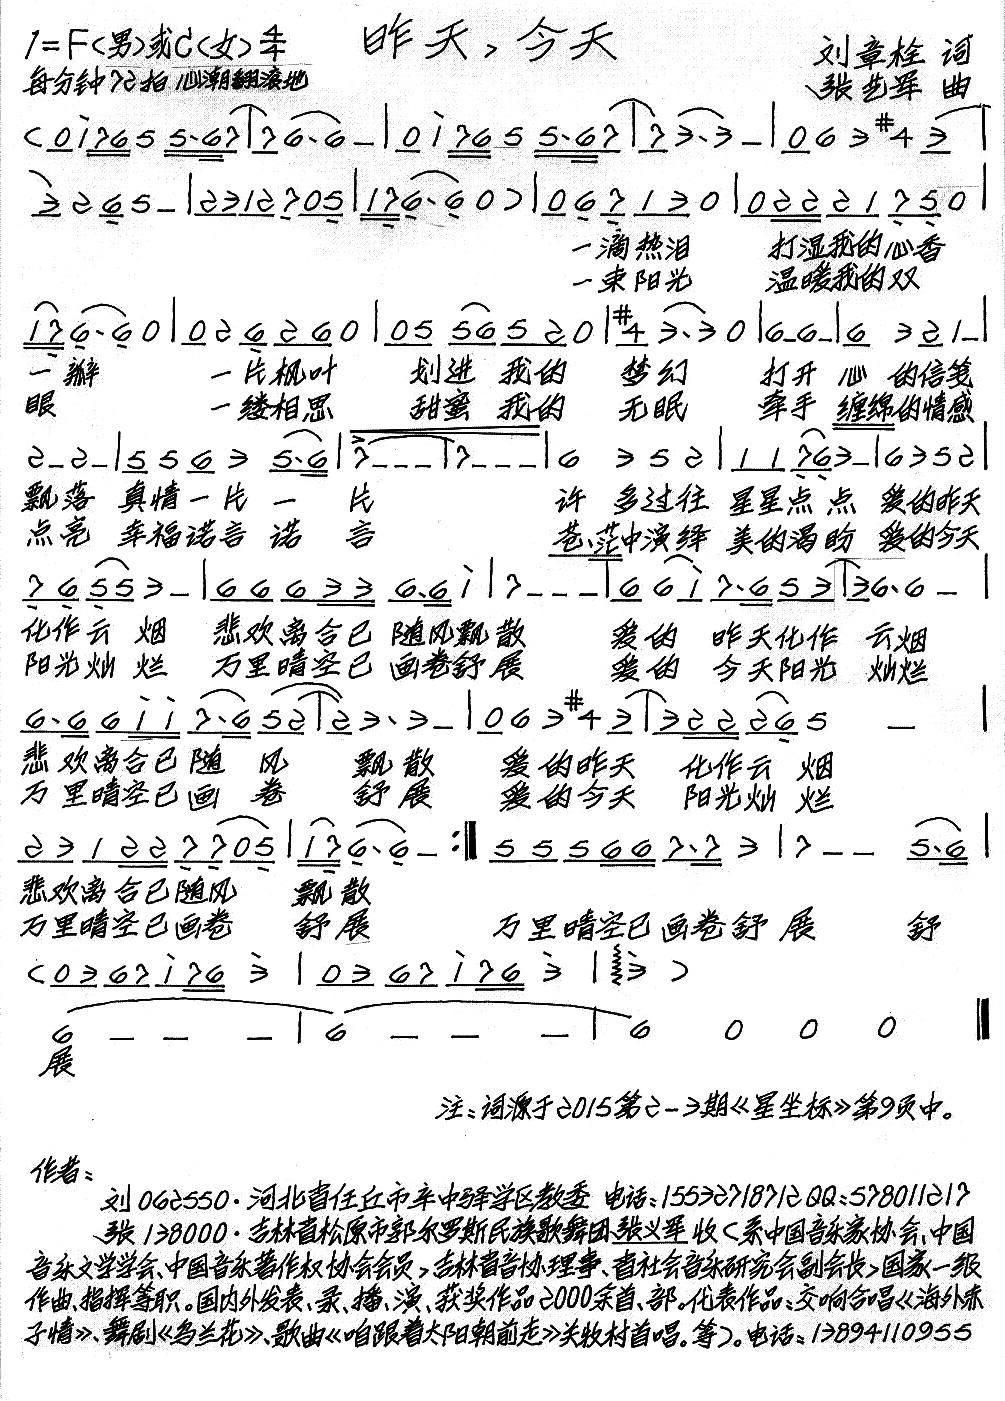 昨天，今天
1=F（男）或C（女）4/4
刘章栓 词
每分钟72拍 心潮翻滚地
张艺军 曲
（0 i 7 6 5 5·6 7 | 7 6·6 － | 0 i 7 6 5 5·6 7 | 7 3·3 － | 0 6 3 #4 3 |
3 2 6 5 － | 2 3 1 2 7 0 5 | 1 7 6·6 0 ） | 0 6 7 1 3 0 | 0 2 2 2 1 7 5 0 |
一滴热泪 打湿我的心香
一束阳光 温暖我的双
1 7 6·6 0 | 0 2 6 2 6 0 | 0 5 5 6 5 2 0 | #4 3·3 0 | 6－6－ | 6 3 2 1－ |
一瓣 一片枫叶 划进 我的 梦幻 打开 心 的信笺
眼 一缕相思 甜蜜 我的 无眠 牵手 缠绵的情感
2－2－ | 5 5 6 3 5·6 | 7－－－ | 7－－－ | 6 3 5 2 | 1 1 7 6 3－ | 6 3 5 2 |
飘落 真情一片 一 片 许 多过往 星星点 点 爱的昨天
点亮 幸福诺言 诺 言 苍茫中演绎 美的渴盼 爱的今天
7 6 5 5 3－ | 6 6 6 3 3 6·6 i | 7－－－ | 6 6 i 7·6 5 3 | 3 6·6 － |
化作云 烟 悲欢离合已 随风飘散 爱的 昨天化作 云烟
阳光灿 烂 万里晴空已 画卷舒展 爱的 今天阳光 灿烂
6·6 6 i i 7·6 5 2 | 2 3·3 － | 0 6 3 #4 3 | 3 2 2 2 6 5 － |
悲欢离合已随 风 飘散 爱的昨天 化作云 烟
万里晴空已画 卷 舒展 爱的今天 阳光灿 烂
2 3 1 2 2 7 7 0 5 | 1 7 6·6 － :‖ 5 5 5 6 6 7·7 3 | 7 － － 5·6 |
悲欢离合已随风 飘散
万里晴空已画卷 舒展 万里晴空已画卷舒 展 舒
（0 3 6 7 i 7 6 3 | 0 3 6 7 i 7 6 3 | 3 ）
6 － － － | 6 － － － | 6 0 0 0 ‖
展
注：词源于2015第2－3期《星坐标》第9页中。
作者：
刘 062550·河北省任丘市辛中驿学区教委 电话：15532718712 QQ：578011217
张 138000·吉林省松原市郭尔罗斯民族歌舞团张义军 收（系中国音乐家协会、中国
音乐文学学会、中国音乐著作权协会会员，吉林省音协理事、省社会音乐研究会副会长，国家一级
作曲、指挥等职。国内外发表、录、播、演、获奖作品2000余首、部。代表作品：交响合唱《海外赤
子情》、舞剧《乌兰花》、歌曲《咱跟着太阳朝前走》关牧村首唱。等）。电话：13894110955